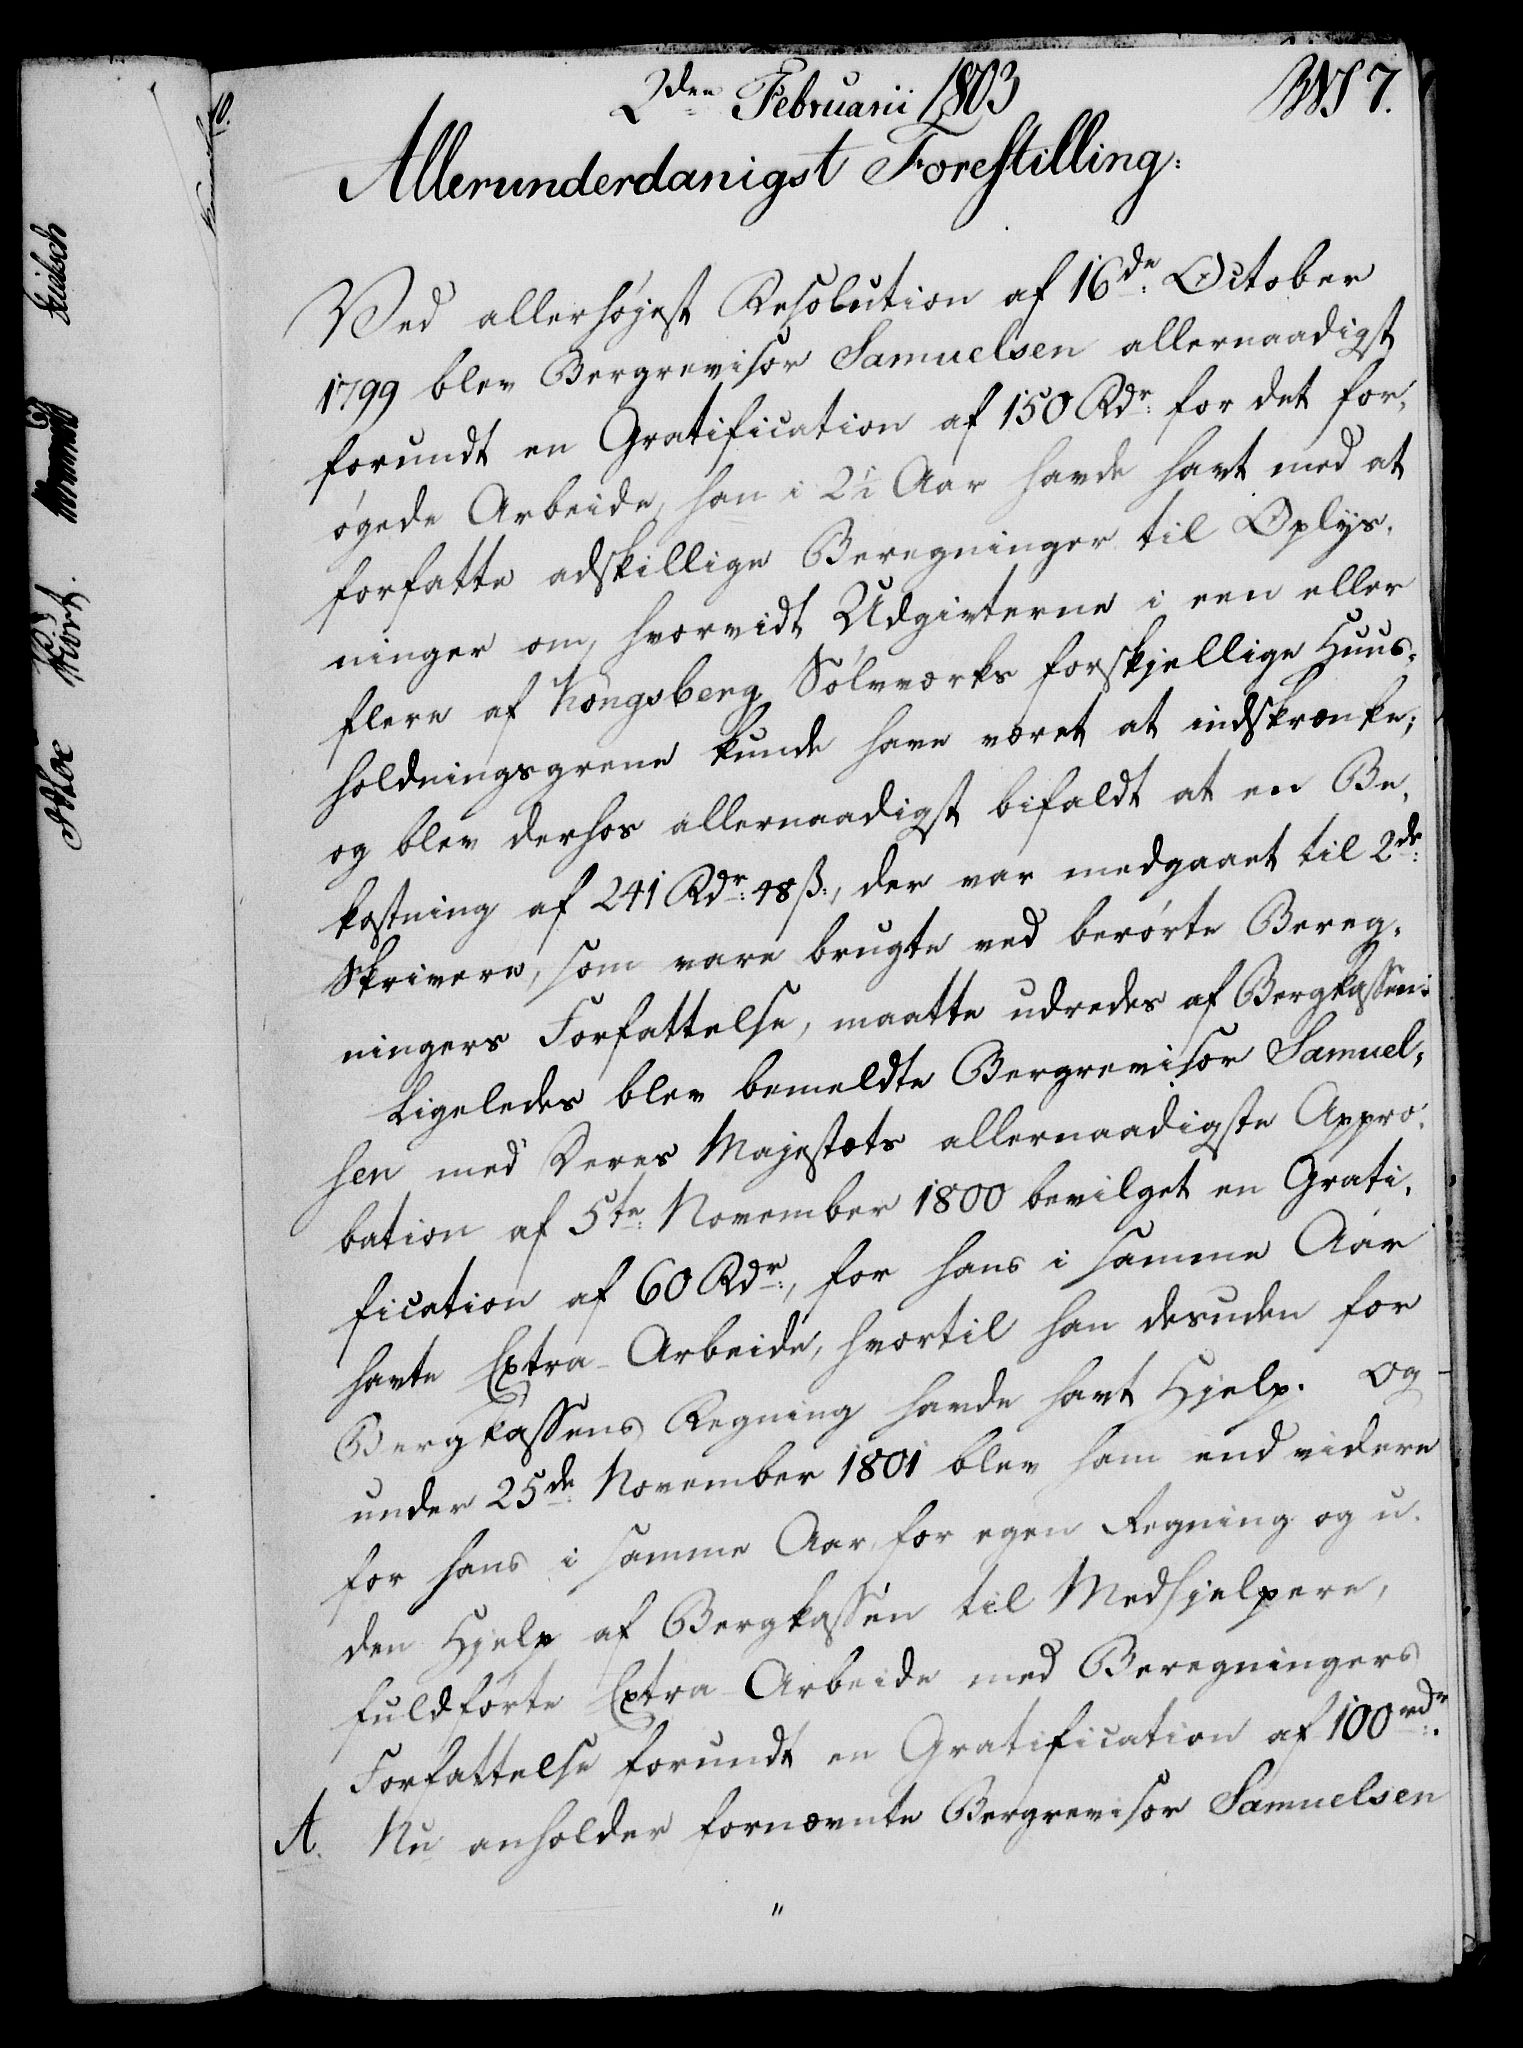 2den Februarii 1803
No 7.
Allerunderdanigst Forestilling:
Ved allerhøjest Resolution af 16de: October
1799 blev Bergrevisor Samuelsen allernaadigst
forundt en Gratification af 150 Rdr: for det for,
øgede Arbeide, han i 2½ Aar havde havt med at
forfatte adskillige Beregninger til Oplys,
ninger om, hvorvidt Udgivterne i een eller
flere af Kongsberg Sølvværks forskjellige Huus,
holdningsgrene kunde have været at indskrænke;
og blev derhos allernaadigst bifaldt at en Be,
kostning af 241 Rdr: 48 ß:, der var medgaaet til 2de:
Skrivere, som vare brugte ved berørte Bereg,
ningers Forfattelse, maatte udredes af Bergkassen:
Ligeledes blev bemeldte Bergrevisor Samuel,
sen med Deres Majestæts allernaadigste Appro,
bation af 5te: November 1800 bevilget en Grati,
fication af 60 Rdr:, for hans i samme Aar
havte Extra-Arbeide, hvortil han desuden for
Bergkassens Regning havde havt Hjelp. Og
under 25de: November 1801 blev ham end videre
for hans i samme Aar, for egen Regning og u,
den Hjelp af Bergkassen til Medhjelpere,
fuldførte Extra-Arbeide med Beregningers
Forfattelse forundt en Gratification af 100 rdr:.
A. Nu anholder fornævnte Bergrevisor Samuelsen
"